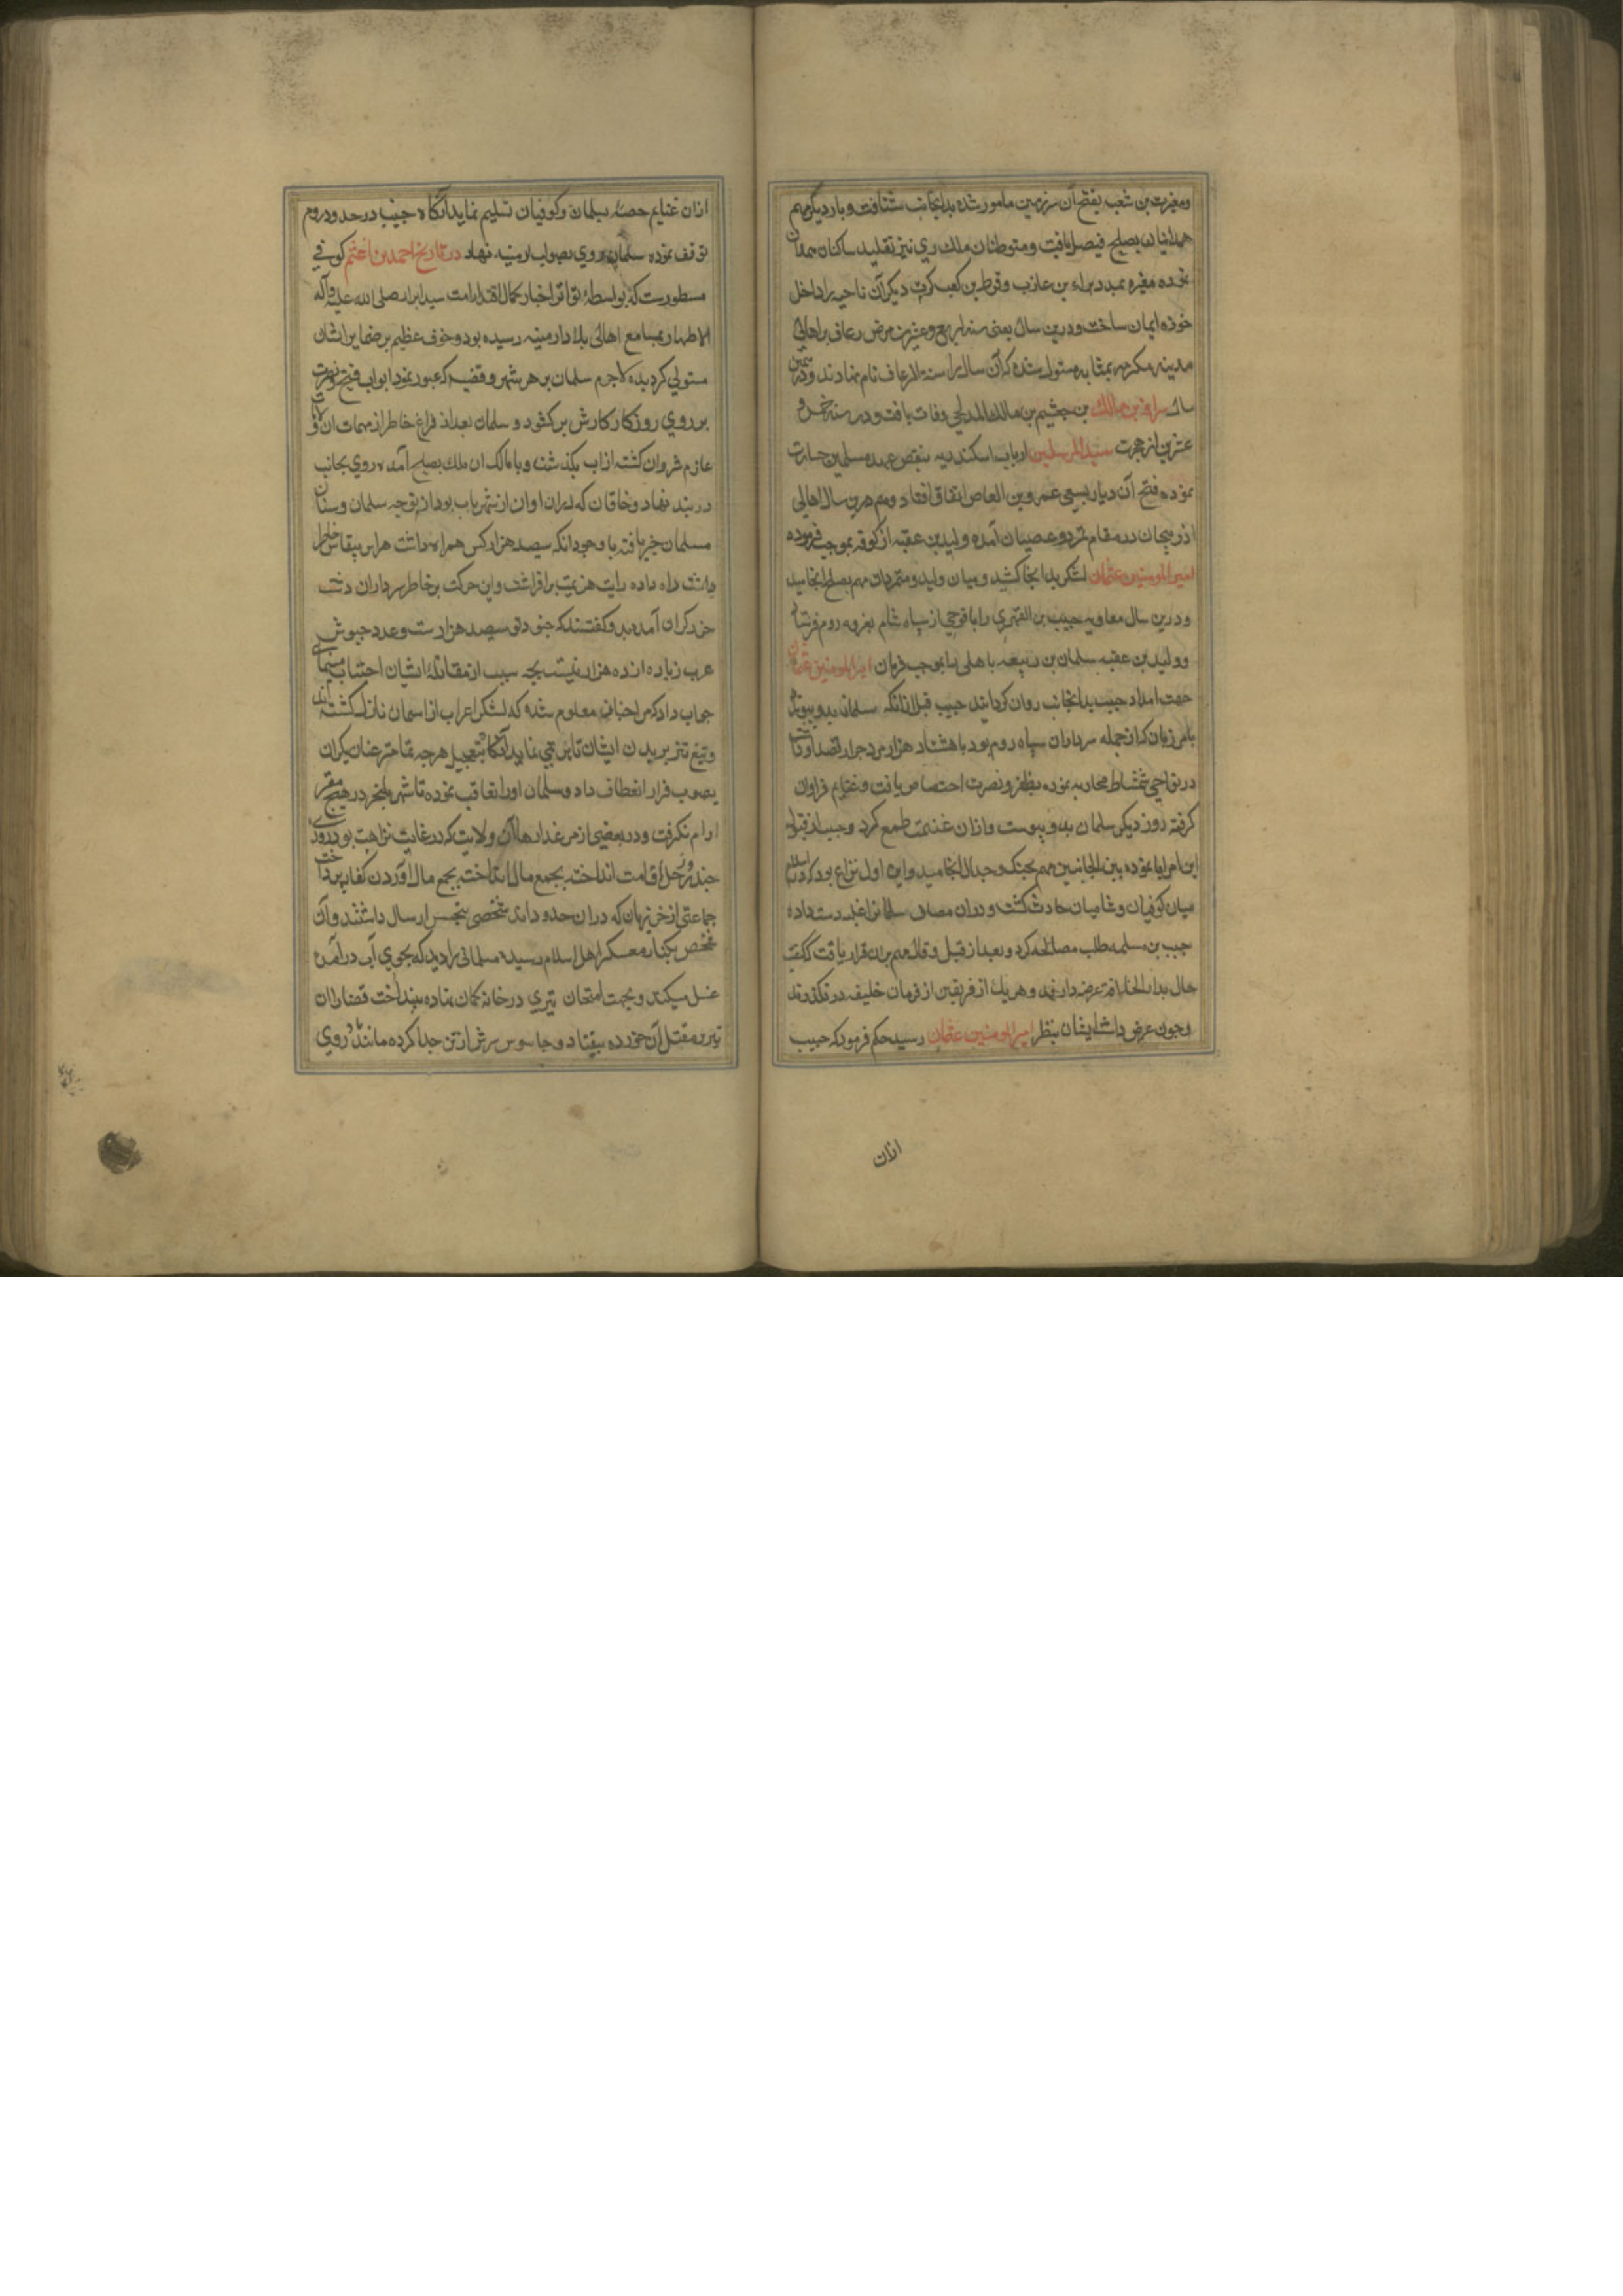 ومغیرت بن شعبه بفتح آن سرزمین مامور شده بدانجانب شتافت و بار دیگر مهم
همدانیان بصلح فیصل یافت و متوطنان ملك ری نیز تقلید ساکنان همدان
نموده مغیره بمدد براء بن عازب و قرظ بن کعب کرت دیگر آن ناحیه را داخل
حوزه ایمان ساخت و درین سال یعنی سنه اربع و عشرین مرض رعاف بر اهالی
مدینه مکرمه بمثابه مستولی شده که آن سال را سنة الرعاف نام نهادند و درین
سال سراقه بن مالك بن جعشم بن مالك المدلجی وفات یافت و در سنه خمس و
عشرین از هجرت سید المرسلین ارباب اسکندریه بنقض عهد مسلمین جسارت
نموده فتح آن دیار بسعی عمرو بن العاص اتفاق افتاد و هم درین سال اهالی
اذربیجان در مقام تمرد و عصیان آمده ولید بن عقبه از کوفه بموجب فرموده
امیر المومنین عثمان لشکر بدانجا کشید و میان ولید و متمردان مهم بصلح انجامید
و درین سال معاویه حبیب بن الفهری را با فوجی از سپاه شام بغزوه روم فرستاد
و ولید بن عقبه سلمان بن ربیعه باهلی را بموجب فرمان امیر المومنین عثمان
جهت امداد حبیب بدانجانب روان کردانید حبیب قبل ازانکه سلمان بدو پیوندد
با مرزبان که از جمله سرداران سپاه روم بود با هشتاد هزار مرد جرار قصد او داشت
در نواحی شمشاط محاربه نموده بظفر و نصرت اختصاص یافت و غنایم فراوان
کرفته روز دیکر سلمان بدو پیوست و ازان غنیمت طمع کرد و حبیب از قبول
این امر ابا نموده بین الجانبین مهم بجنك و جدال انجامید و این اول نزاع بود که در اسلام
میان کوفیان و شامیان حادث کشت و دران مصاف سلمانرا غلبه دست داده
حبیب بن مسلمه طلب مصالحه کرد و بعد از قیل و قال مهم بران قرار یافت که کیفیت
حال بدار الخلافة عرضه دارند و هر یك از فریقین از فرمان خلیفه در نکذرند
و چون عرض داشت ایشان بنظر امیر المومنین عثمان رسید حکم فرمود که حبیب
ازان
ازان غنایم حصهٔ بسلمان و کوفیان تسلیم نماید آنکاه حبیب در حدود روم
توقف نموده سلمان روی بصوب ارمنیه نهاد در تاریخ احمد بن اعثم کوفی
مسطورست که بواسطهٔ تواتر اخبار کمال اقتدار امت سید ابرار صلی الله علیه و آله
الاطهار بمسامع اهالی بلاد ارمنیه رسیده بود و خوف عظیم بر ضمایر ایشان
مستولی کردیده لاجرم سلمان بر هر شهر و قصبه که عبور نمود ابواب فتح و نصرت
بر روی روزکار کارش برکشود و سلمان بعد از فراغ خاطر از مهمات ان ولایات
عازم شروان کشته از اب بکذشت و با مالک ان ملك بصلح آمده روی بجانب
دربند نهاد و خاقان که دران اوان از شهر باب بود از توجه سلمان و سپاه
مسلمان خبر یافته با وجود انکه سیصد هزار کس همراه داشت هراس بیقیاس بخاطر
راه داده رایت هزیمت برافراشت و این حرکت بر خاطر سرداران دشت
خزر کران آمده بدو کفتند که جنود تو سیصد هزارست و عدد جیوش
عرب زیاده از ده هزار نیست بچه سبب از مقاتلهٔ ایشان اجتناب مینمای
جواب داد که من چنان معلوم شده که لشکر اعراب از اسمان نازل کشته اند
و تیغ تیز بریدن ایشان تاثیری نمی نماید آنکاه بتعجیل هر چه تمامتر عنان یکران
بصوب فرار انعطاف داد و سلمان او را تعاقب نموده تا شهر بلنجر در هیچ مقر
ارام نکرفت و در بعضی از مرغدارهای آن ولایت که در غایت نزاهت بود روزی
چند رحل اقامت انداخته بجمع مال اوردن کفار پرداخت
جماعتی از خزریان که دران حدود بودند شخصی بتجسس ارسال داشتند و آن
شخص بکنار معسکر اهل اسلام رسیده مسلمانی را دید که بجوی آب درآمده
غسل میکند و بجهت امتحان تیری در خانه کمان نهاده بینداخت قضا را ان
تیر بر مقتل آن خورده بیفتاد و جاسوس سرش از تن جدا کرده مانند روی